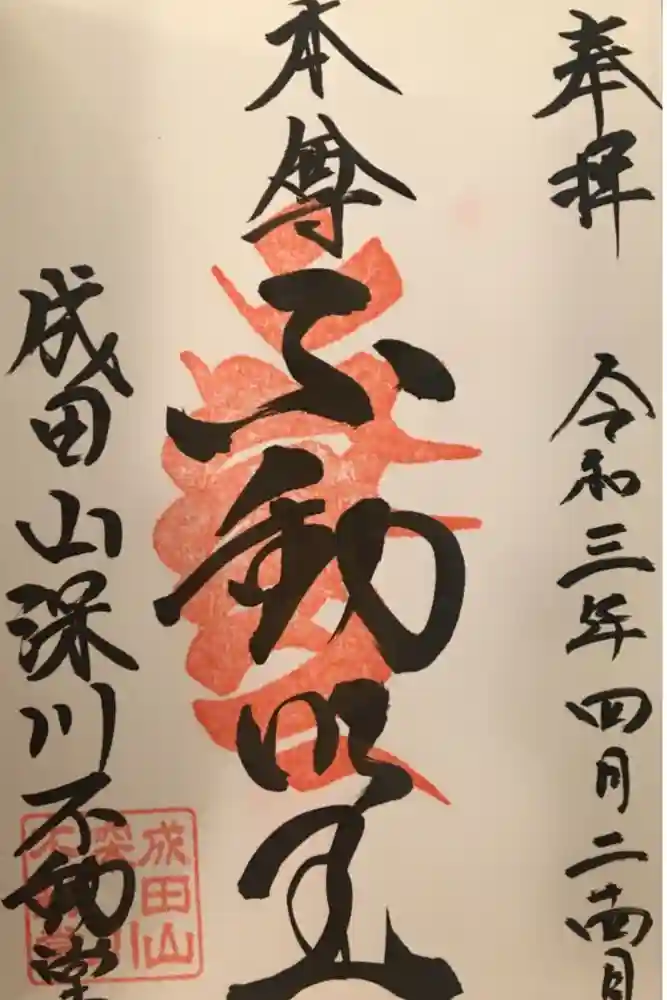 奉拝 令和三年四月二十四日
本尊 不動明王
成田山深川不動堂
成田山
深川
不動堂